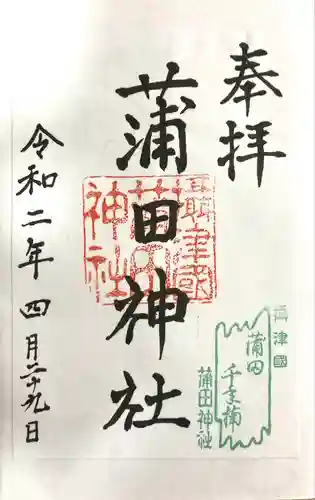 奉拝
攝津國
蒲田神社
蒲田神社
令和二年 四月二十九日
攝津國
蒲田
千年楠
蒲田神社